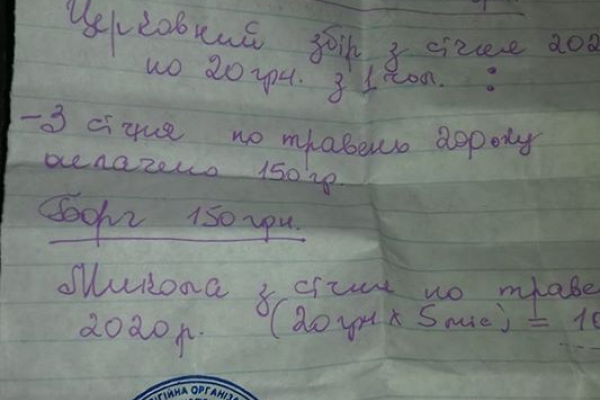 Церковний збір з січня 202
по 20 грн. з 1 чол. :
- З січня по травень 20 року
оплачено 150 гр.
Борг 150 грн.
Микола з січня по траве
2020 р. (20 грн x 5 міс) = 10
ІГІЙНА ОРГАНІЗА